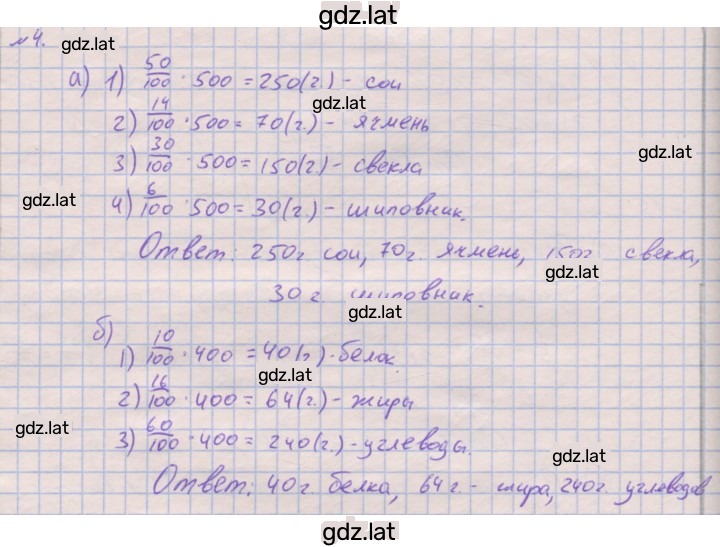 gdz.lat
№4.
gdz.lat
а) 1) 50/100 · 500 = 250(г.) - сои
gdz.lat
2) 14/100 · 500 = 70(г.) - ячмень
gdz.lat
3) 30/100 · 500 = 150(г.) - свекла
gdz.lat
4) 6/100 · 500 = 30(г.) - шиповник.
Ответ: 250г сои, 70г. ячмень, 150г свекла,
gdz.lat
30 г. шиповник.
gdz.lat
б)
1) 10/100 · 400 = 40(г.) - белок
gdz.lat
2) 16/100 · 400 = 64(г.) - жиры
gdz.lat
3) 60/100 · 400 = 240(г.) - углеводы.
gdz.lat
Ответ: 40г. белка, 64г. - жира, 240г. углеводов
gdz.lat